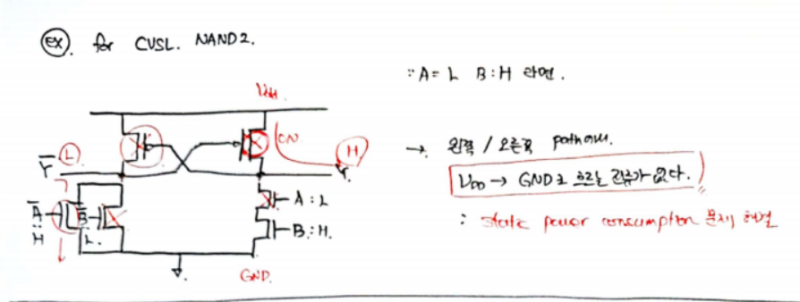 ex. for CVSL. NAND2.
: A= L B : H 라면.
Vdd
ON
Y̅ L
H
Y.
→ 왼쪽 / 오른쪽 path에서.
VDD → GND로 흐르는 전류가 없다.
: static power consumption 문제 해결
A̅ : H
B̅ : L.
A : L
B : H.
GND.